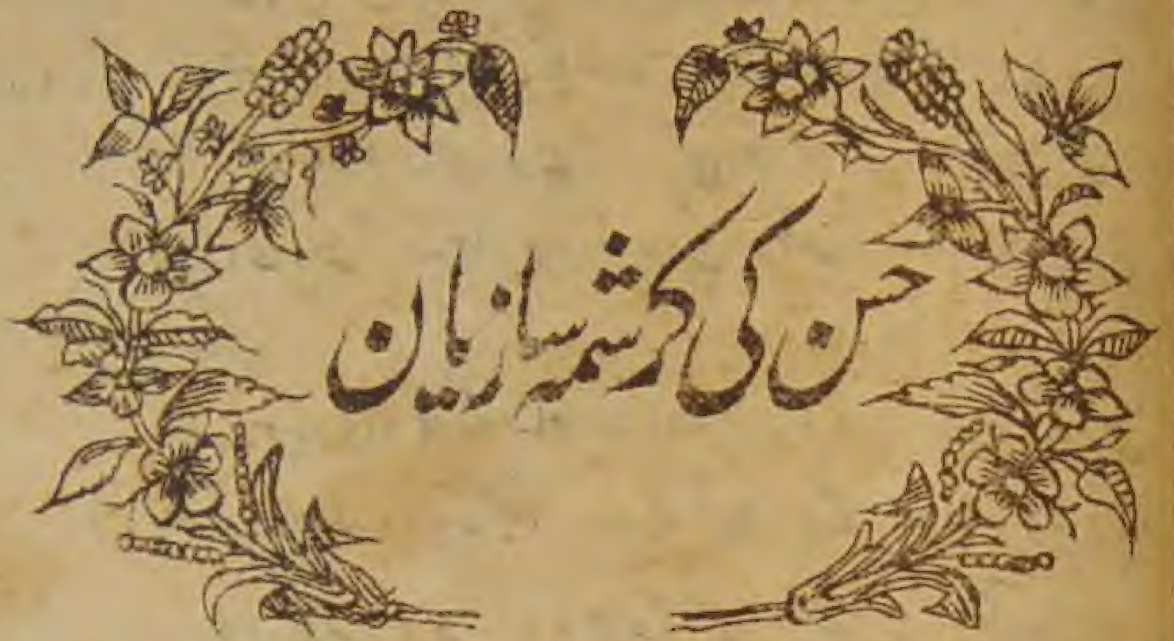 حسن کی کرشمہ سازیاں